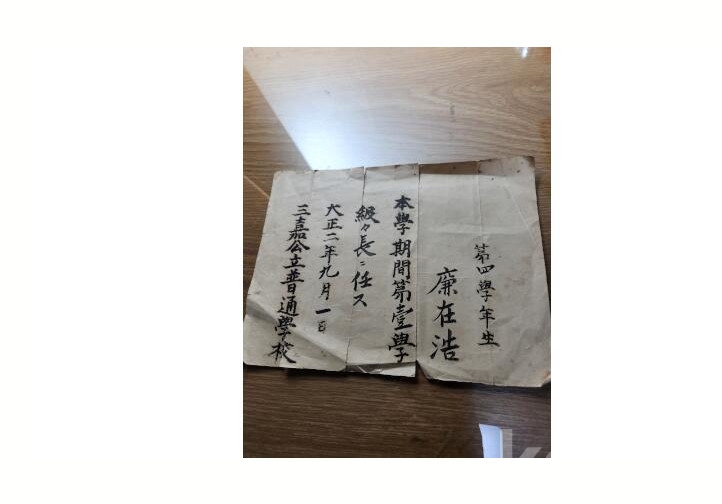 第四學年生
廉在浩
本學期間第壹學
級々長ニ任ス
大正二年九月一日
三嘉公立普通學校